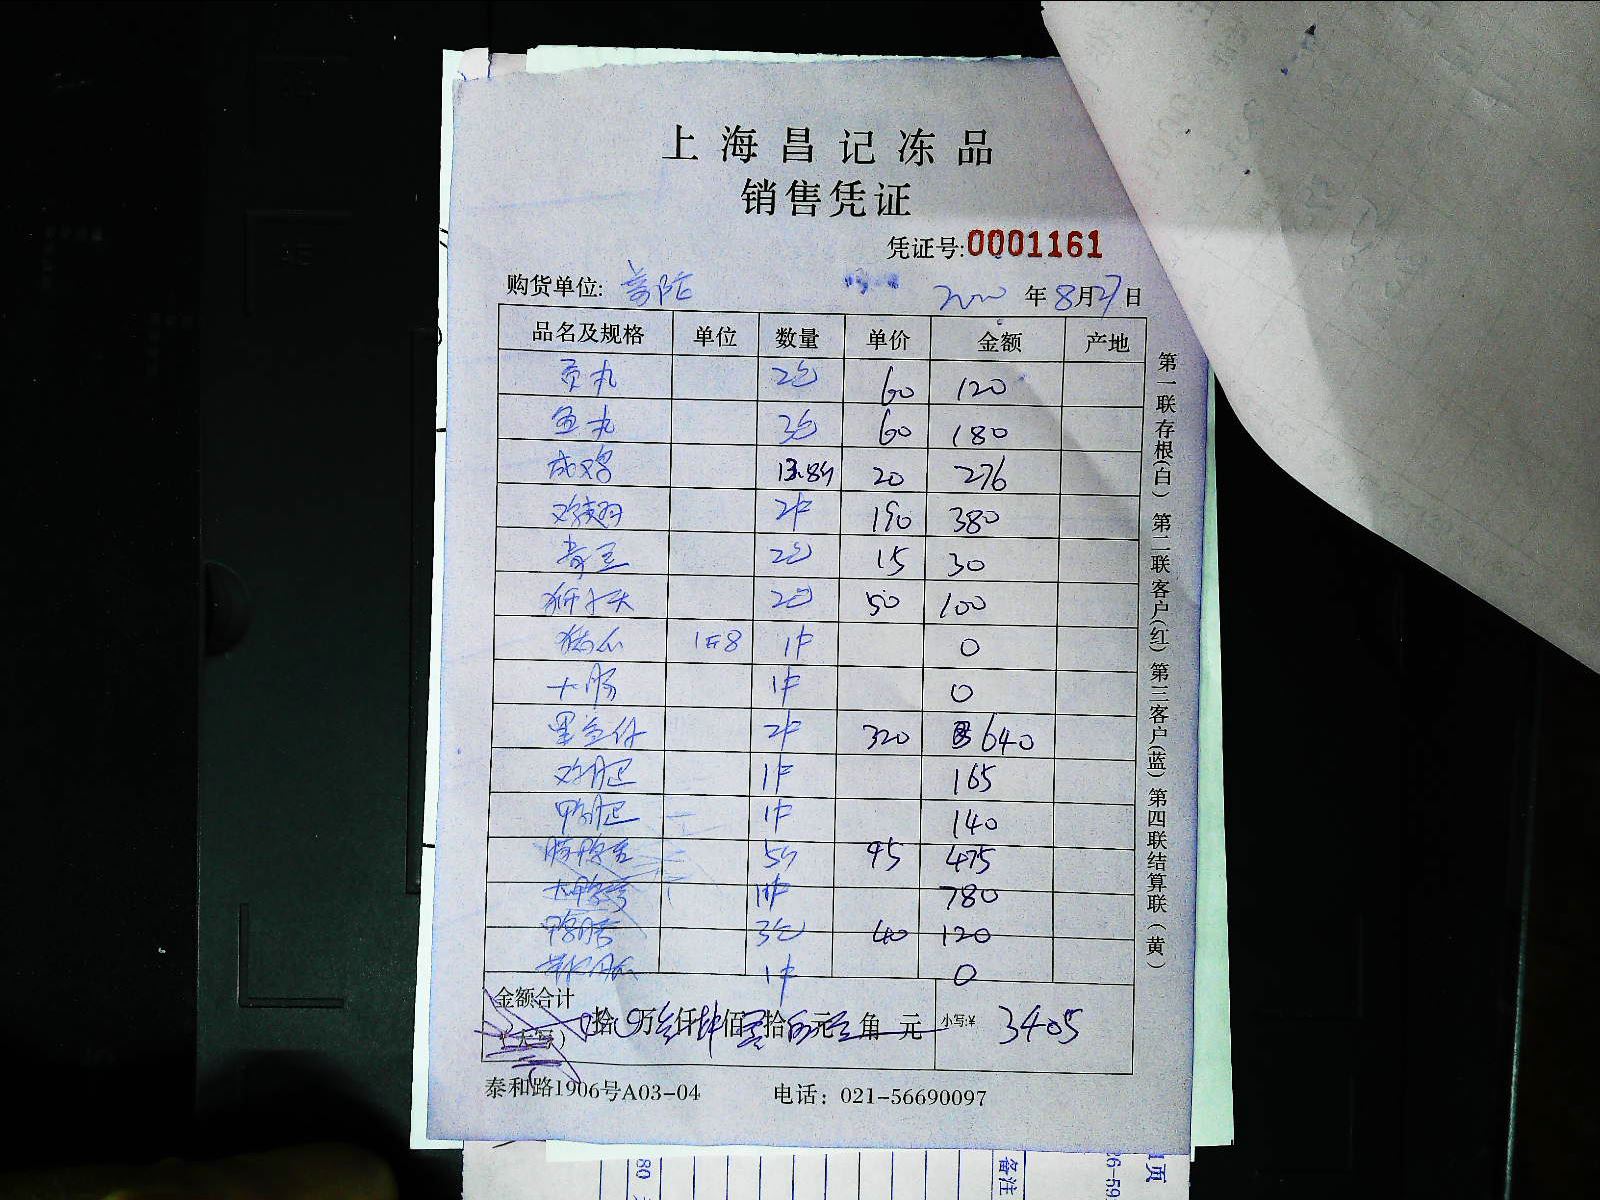 上海昌记冻品
销售凭证
凭证号:0001161
购货单位: 年8月27日
品名及规格 单位 数量 单价 金额 产地
贡丸 2包 60 120
鱼丸 3包 60 180
成鸡 13.8斤 20 276
鸡翅 2件 190 380
青豆 2包 15 30
狮子头 2包 50 100
1件 0
大肠 1件 0
墨鱼仔 2件 320 640
鸡胗 1件 165
鸭胗 1件 140
5斤 95 475
1件 780
3包 40 120
1件 0
金额合计
(大写) 拾 万 叁仟肆佰零拾伍元 角 元 小写:¥ 3405
泰和路1906号A03-04 电话: 021-56690097
第一联存根(白) 第二联客户(红) 第三客户(蓝) 第四联结算联(黄)
备注